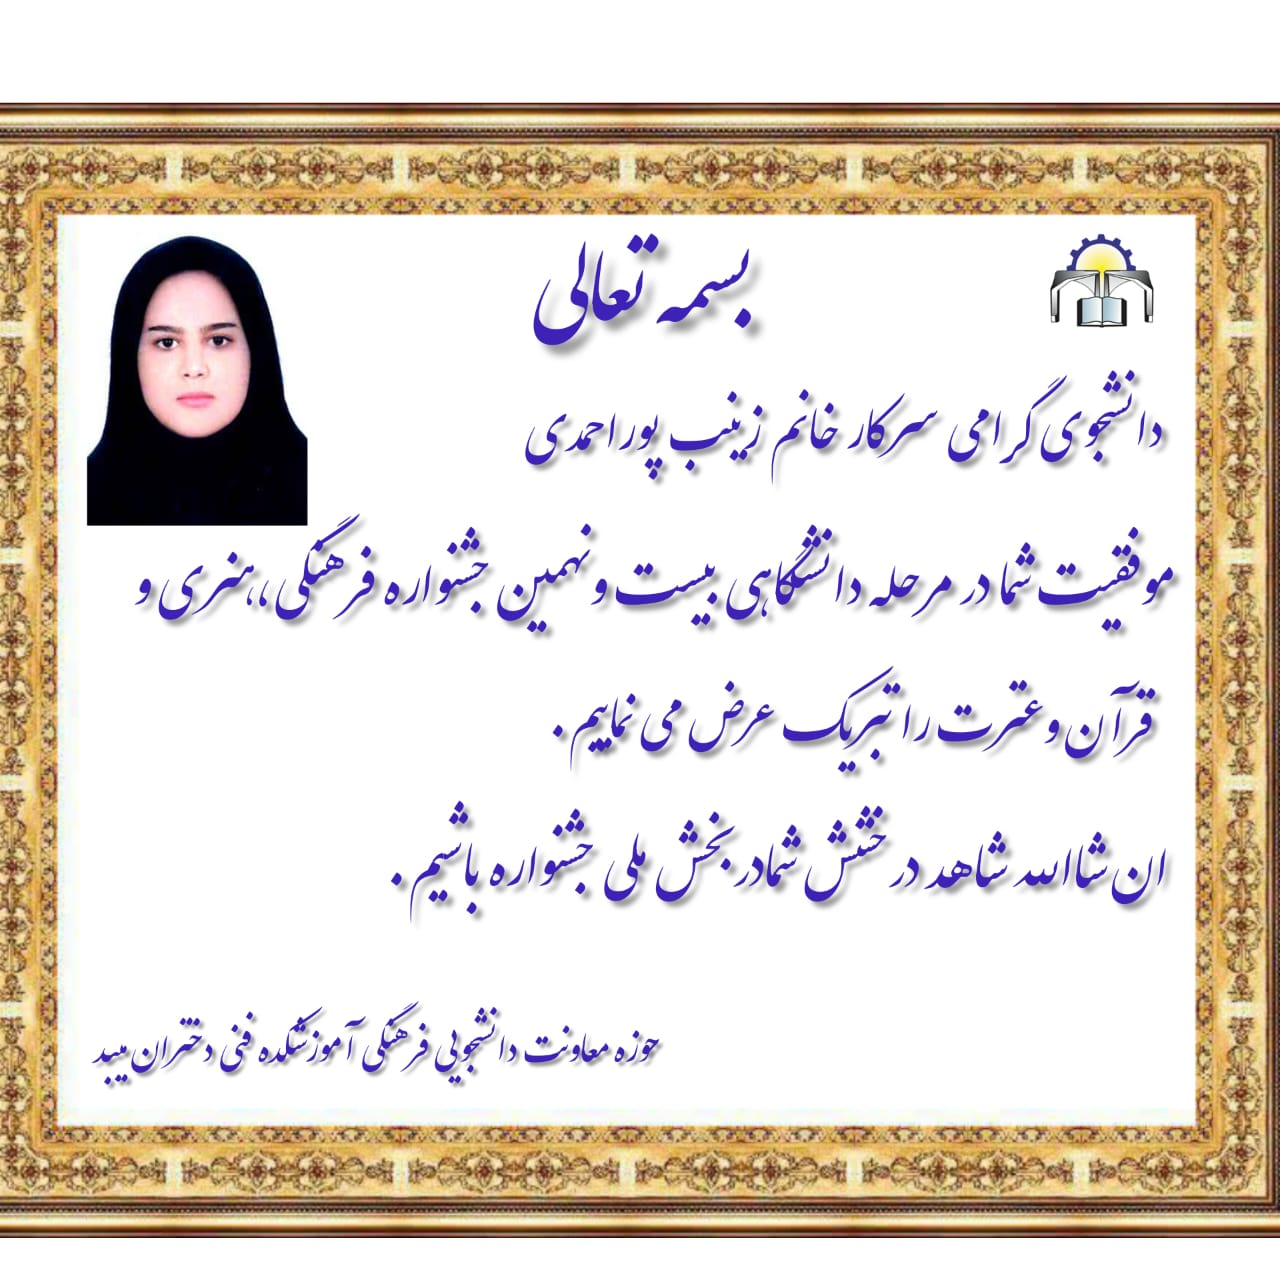 بسمه تعالی
دانشجوی گرامی سرکار خانم زینب پوراحمدی
موفقیت شما در مرحله دانشگاهی بیست و نهمین جشنواره فرهنگی ،،هنری و
قرآن و عترت را تبریک عرض می نماییم .
ان شاالله شاهد درخشش شمادربخش ملی جشنواره باشیم .
حوزه معاونت دانشجویی فرهنگی آموزشکده فنی دختران میبد